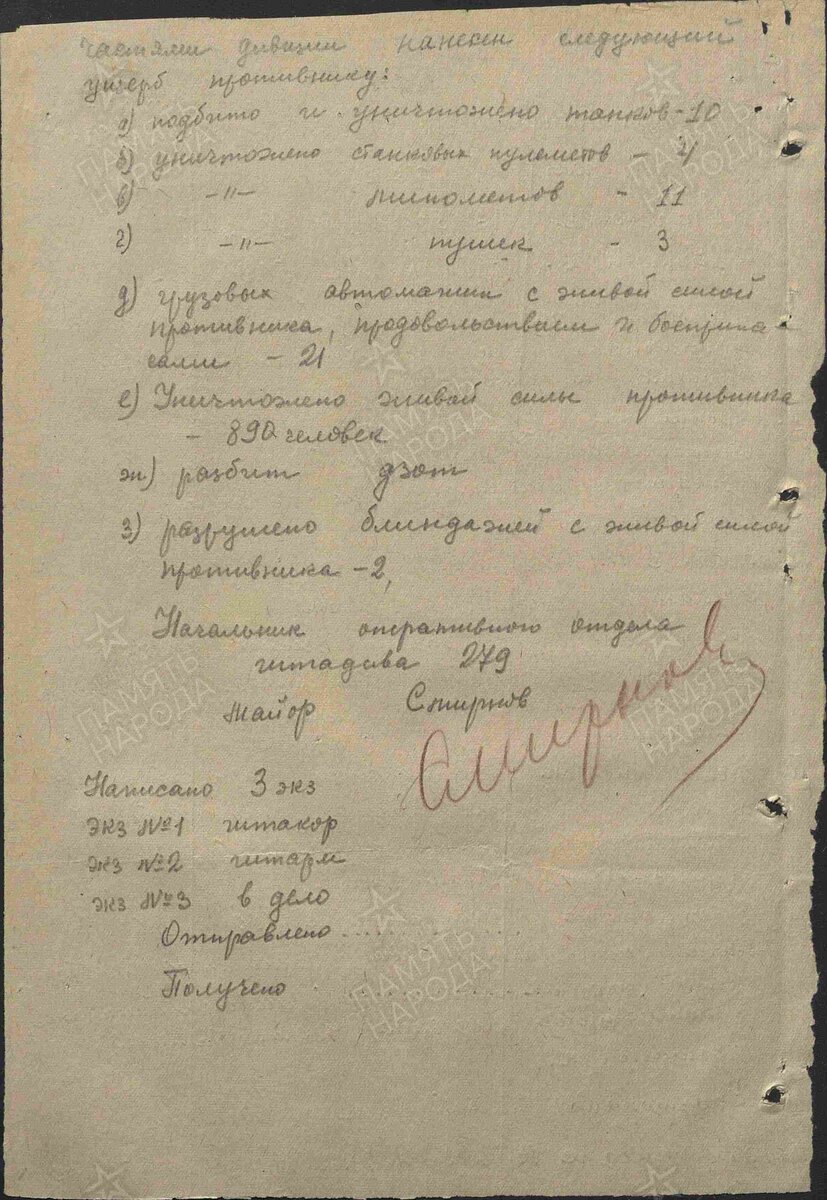 частями дивизии нанесен следующий
ущерб противнику:
а) подбито и уничтожено танков - 10
б) уничтожено станковых пулеметов - 4
в) -"- минометов - 11
г) -"- пушек - 3
д) грузовых автомашин с живой силой
противника, продовольствием и боеприпа-
сами - 21
е) Уничтожено живой силы противника
- 890 человек
ж) разбит дзот
з) разрушено блиндажей с живой силой
противника - 2,
Начальник оперативного отдела
штадива 279
майор Смирнов
Смирнов
Написано 3 экз
экз №1 штакор
экз №2 штарм
экз №3 в дело
Отправлено
Получено
ПАМЯТЬ НАРОДА